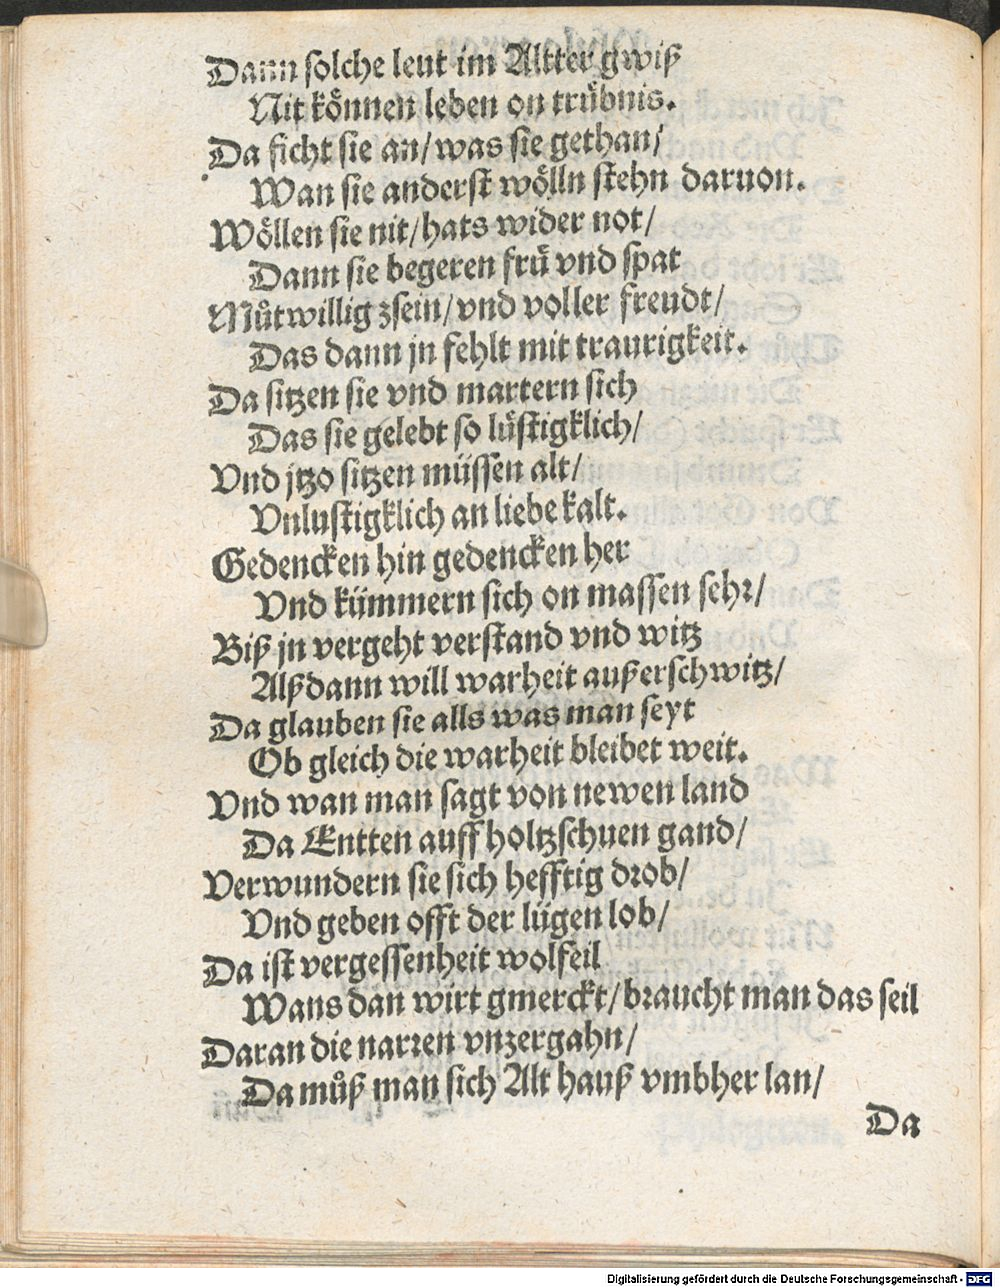 Dann solche leut im Altter gwiß
Nit können leben on trübnis.
Da ficht sie an/was sie gethan/
Wan sie anderst wölln stehn daruon.
Wöllen sie nit/hats wider not/
Dann sie begeren frü vnd spat
Můtwillig zsein/vnd voller freudt/
Das dann jn fehlt mit traurigkeit.
Da sitzen sie vnd martern sich
Das sie gelebt so lüstigklich/
Vnd jtzo sitzen müssen alt/
Vnlustigklich an liebe kalt.
Gedencken hin gedencken her
Vnd kümmern sich on massen sehr/
Biß jn vergeht verstand vnd witz
Alßdann will warheit außerschwitz/
Da glauben sie alls was man seyt
Ob gleich die warheit bleibet weit.
Vnd wan man sagt von newen land
Da Entten auff holtzschuen gand/
Verwundern sie sich hefftig drob/
Vnd geben offt der lügen lob/
Da ist vergessenheit wolfeil
Wans dan wirt gmerckt/braucht man das seil
Daran die narren vnzergahn/
Da můß man sich Alt hauß vmbher lan/
Da
Digitalisierung gefördert durch die Deutsche Forschungsgemeinschaft - DFG